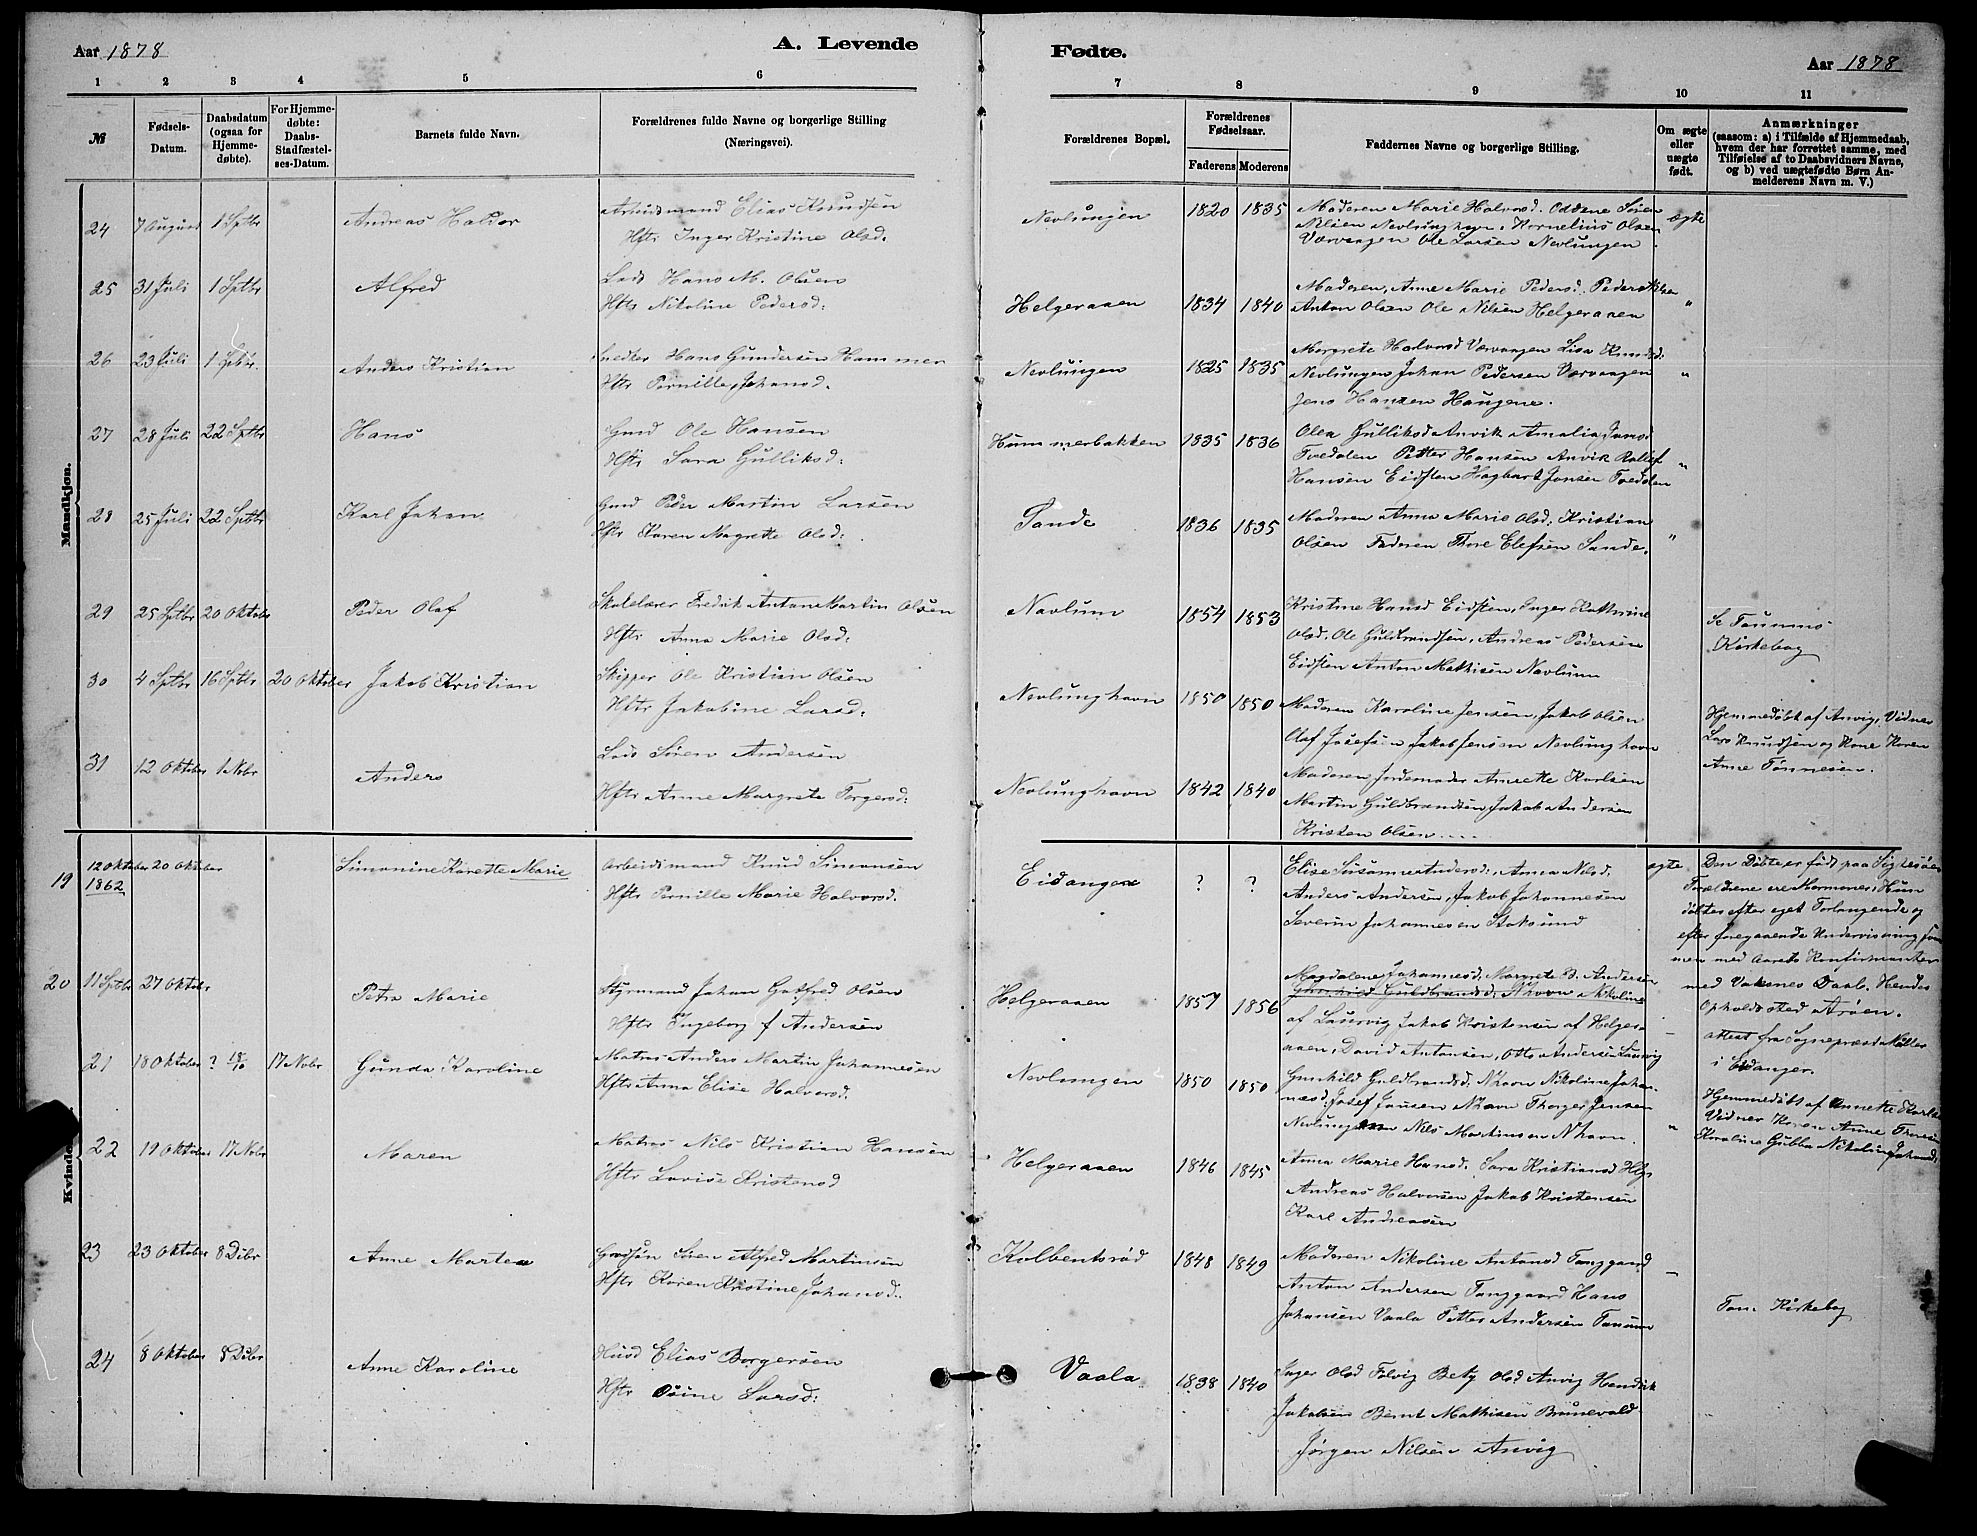 Aar 1878
A. Levende
Fødte.
Aar 1878
1 2 3 4 5 6
7 8 9 10 11
№
Fødsels-
Datum.
Daabsdatum
(ogsaa for
Hjemme-
døbte).
For Hjemme-
døbte:
Daabs-
Stadfæstel-
ses-Datum.
Barnets fulde Navn.
Forældrenes fulde Navne og borgerlige Stilling
(Næringsvei).
Forældrenes Bopæl.
Forældrenes
Fødselsaar.
Faderens
Moderens
Faddernes Navne og borgerlige Stilling.
Om ægte
eller
uægte
født.
Anmærkninger
(saasom: a) i Tilfælde af Hjemmedaab,
hvem der har forrettet samme, med
Tilføielse af to Daabsvidners Navne,
og b) ved uægtefødte Børn An-
melderens Navn m. V.)
Mandkjøn.
24 7 August 1 Sptbr Andreas Haldor
Arbeidsmand Elias Knudsen
Hftr Inger Kristine Olsd.
Nevlungen 1820 1835
Moderen Marie Halvorsd. Oddene Søren
Nilsen Nevlunghavn, Kornelius Olsen
Værvaagen Ole Larsen Nevlungen
ægte
25 31 Juli 1 Sptbr Alfred
Lods Hans M. Olsen
Hftr Nikoline Pedersd:
Helgeraaen 1834 1840
Moderen, Anne Marie Pedersd.
Anton Olsen Ole Nilsen Helgeraaen
"
26 23 Juli 1 Sptbr. Anders Kristian
Snedker Hans Gundersen Hammer
Hftr Pernille Johansd.
Nevlungen 1825 1835
Margrete Halvorsd Værvaagen Lisa Knudsd:
Nevlungen Johan Pedersen Værvaagen
Jens Hansen Haugene.
"
27 28 Juli 22 Sptbr Hans
Gmd Ole Hansen
Hftr Sara Gulliksd:
Hummerbakken 1835 1836
Olea Gulliksd Anvik Amalia Jansd
Tvedalen Petter Hansen Anvik Rollef
Hansen Eidsten Hagbart Jansen Tvedalen
"
28 25 Juli 22 Sptbr Karl Johan
Gmd Peder Martin Larsen
Hftr Karen Magrette Olsd:
Sande 1836 1835
Moderen Anna Marie Olsd. Kristian
Olsen Faderen Thore Elefsen Sande.
"
29 25 Sptbr 20 Oktober Peder Olaf
Skolelærer Fredrik Anton Martin Olsen
Hftr Anna Marie Olsd:
Navlum 1854 1853
Kristine Hansd Eidsten, Inger Kathrine
Olsd. Ole Guldbrandsen, Andreas Pedersen
Eidsten Anton Mathisen Navlum
Se Tanums
Kirkebog
30 4 Sptbr 16 Sptbr 20 Oktober Jakob Kristian
Skipper Ole Kristian Olsen
Hftr Jakobine Larsd:
Nevlunghavn 1850 1850
Moderen Karoline Jensen, Jakob Olsen
Olaf Josefsen Jakob Jensen Nevlunghavn
Hjemmedøbt af Anvig, Vidner
Lars Knudsen og Kone Karen
Anne Tønnesen.
31 12 Oktober 1 Nvbr Anders
Lods Søren Andersen
Hftr Anne Margrete Torgersd:
Nevlunghavn 1842 1840
Moderen Jordemoder Annette Karlsen
Martin Guldbrandsen, Jakob Andersen
Kristen Olsen
19 12 Oktober 1862 20 Oktober Simonine Karette Marie
Arbeidsmand Knud Simonsen
Hftr Pernille Marie Halvorsd.
Eidanger ? ?
Elise Susanne Andersd:, Anna Nilsd.
Anders Andersen, Jakob Johannesen
Severin Johannesen Stoksund
ægte
Den Døbte er født paa
Forældrene ere Mormoner; Hun
døbtes efter eget Forlangende og
efter foregaaende Undervisning sam-
men med Aarets Konfirmanter
med Voksnes Daab. Hendes
Opholdssted Arøen.
attest fra Sognepræst Møller
i Eidanger.
Kvindekjøn.
20 11 Sptbr 27 Oktobr Petra Marie
Styrmand Johan Gotfred Olsen
Hftr Ingeborg f Andersen
Helgeraaen 1857 1856
Magdalene Johannesd: Margrete B. Andersen
Gunhild Guldbrandsd: Nhavn Nikoline
af Laurvig Jakob Kristensen af Helger-
aaen, David Antonsen, Otto Andersen Laurvig
–
21 18 Oktober ? 18/10 17 Nvbr Gunda Karoline
Matros Anders Martin Johannesen
Hftr Anna Elise Halvorsd.
Nevlungen 1850 1850
Gunhild Guldbrandsd, Nhavn Nikoline Johan-
nesd: Josef Jansen Nhavn Thorger Jensen
Nevlungen Nils Martinsen Nhavn.
"
Hjemmedøbt af Annette Karls
Vidner Karen Anne
Karoline Gubba Nikoline Johansd:
22 19 Oktober 17 Nvbr Maren
Matros Nils Kristian Hansen
Hftr Lovise Kristensd
Helgeraaen 1846 1845
Anna Marie Hansd. Sara Kristiansd Hlgr
Andreas Halvorsen Jakob Kristensen
Karl Andreasen
23 23 Oktober 8 Dcbr Anne Martea
Grdsøn Søren Alfred Martinsen
Hftr Karen Kristine Johansd:
Kolbentsrød 1848 1849
Moderen Nikoline Antonsd Tanggaard
Anton Andersen Tanggaard Hans
Johansen Vaala Petter Andersen Tanum
–
Tan. Kirkebog
24 8 Oktober 8 Dcbr Anne Karoline
Husd Elias Borgersen
Hftr Larsd:
Vaala 1838 1840
Inger Olsd Folvig Bety Olsd Anvig Hendrik
Jakobsen Bernt Mathisen Brunevald
Jørgen Nilsen Anvig